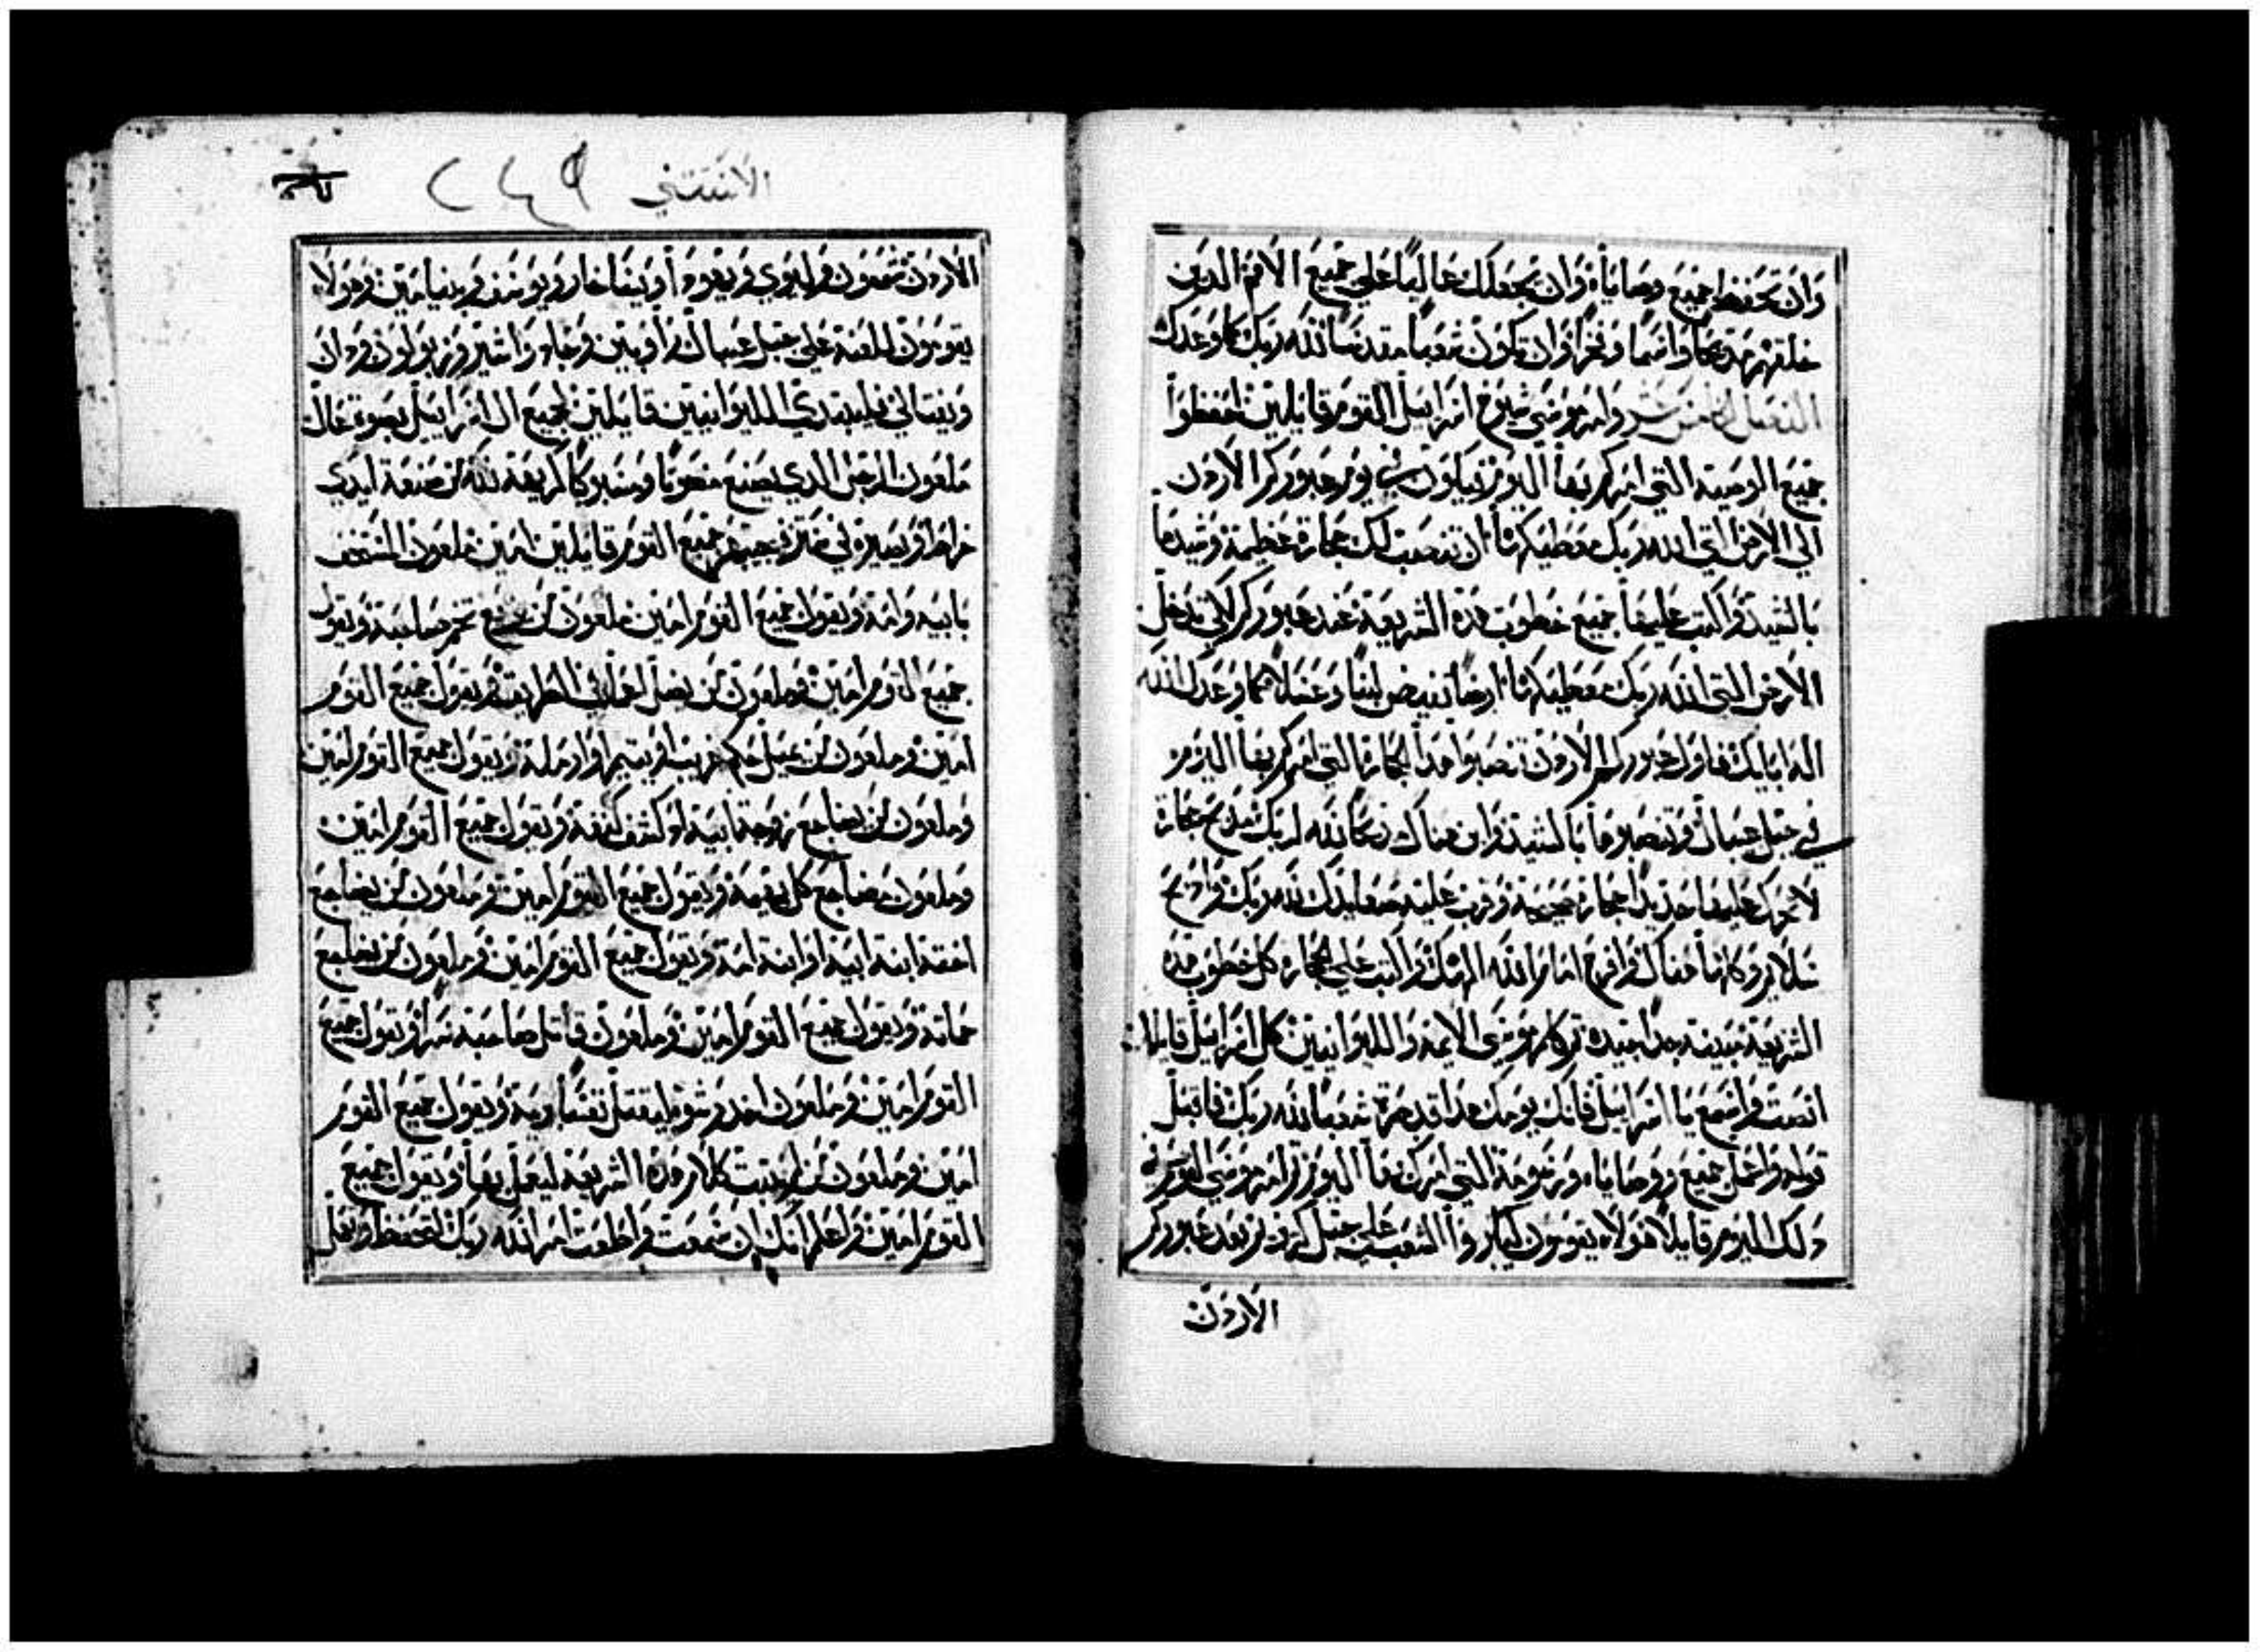 وان تحفظ جميع وصاياه وان يجعلك عاليا علي جميع الامم الدين
خلقهم مديحا واسما وفخرا وان تكون شعبا مقدسا لله ربك كما وعدك
الفصل وامر موسي شيوخ اسراييل القوم قايلين احفظوا
جميع الوصية التي امركم بها اليوم فيكون في يوم عبوركم الاردن
الي الارض التي الله ربك معطيكها ان تنصب لك حجارة عظيمة وشيدها
بالشيد واكتب عليها جميع خطوب هذه الشريعة عند عبوركم لكي تدخل
الارض التي الله ربك معطيكها ارضا تفيض لبنا وعسلا كما وعدك الله
اله ابايك فاول عبوركم الاردن تنصبوا هدا الحجارة التي امركم بها اليوم
في جبل عيبال وتنصبوها بالشيد وابن هناك مدبحا لله ربك مدبح حجارة
لا تحرك عليها حديدا حجارة صحيحة وقرب عليه صعايدك لله ربك وادبح
سلايم وكلها هناك وافرح امام الله الهك واكتب علي الحجارة كل خطوب هذه
الشريعة مبينة جدا جيده ثم كلم موسي الايمة والليوانيين كل اسراييل قايلا
انصت واسمع يا اسراييل فانك يومك هدا قد صرت شعبا لله ربك فاقبل
قوله واعمل جميع وصاياه ورسومه التي امرك بها اليوم وامر موسي القوم
دلك اليوم قايلا هولاء يقومون ليباركوا الشعب علي جبل كرزيم بعد عبوركم
الاردن
الاستثني ٢٤٩
الاردن شمعون وليوي ويهودا ويساخار ويوسف وبنيامين وهولاء
يقومون للعنة علي جبل عيبال راوبين وجاد واشير وزبولون ودان
ونفتالي فليبتدي الليوانيين قايلين لجميع ال اسراييل بصوت عال
ملعون الرجل الدي يصنع منحوتا ومسبوكا كريهة لله من صنعة ايدي
خراط ويصيره في ستر فيجيبهم جميع القوم قايلين امين ملعون المستخف
بابيه وامه ويقول جميع القوم امين ملعون من تخم صاحبه ويقول
جميع القوم امين وملعون من يضل اعما في الطريق ويقول جميع القوم
امين وملعون من يميل حكم غريب او يتيم او ارملة ويقول جميع القوم امين
وملعون من يضاجع زوجة ابيه او كشف كنفه ويقول جميع القوم امين
وملعون مضاجع كل بهيمة ويقول جميع القوم امين وملعون من يضاجع
اخته ابنة ابيه او ابنة امه ويقول جميع القوم امين وملعون من يضاجع
حماته ويقول جميع القوم امين وملعون قاتل صاحبه سرا ويقول جميع
القوم امين وملعون اخد رشوة ليقتل نفسا بريه ويقول جميع القوم
امين وملعون من لم يثبت كلام هذه الشريعة ليعمل بها ويقول جميع
القوم امين واعلم انك ان سمعت واطعت امر الله ربك لتحفظ وتعمل